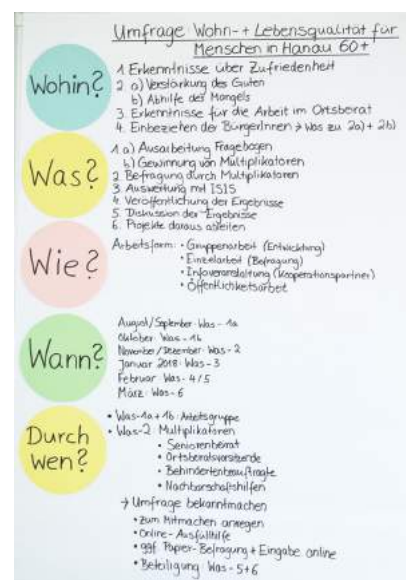 Umfrage Wohn- + Lebensqualität für
Menschen in Hanau 60+
Wohin?
1. Erkenntnisse über Zufriedenheit
2. a) Verstärkung des Guten
b) Abhilfe des Mangels
3. Erkenntnisse für die Arbeit im Ortsbeirat
4. Einbeziehen der BürgerInnen → Was zu 2a) + 2b)
Was?
1. a) Ausarbeitung Fragebogen
b) Gewinnung von Multiplikatoren
2. Befragung durch Multiplikatoren
3. Auswertung mit ISIS
4. Veröffentlichung der Ergebnisse
5. Diskussion der Ergebnisse
6. Projekte daraus ableiten
Wie?
Arbeitsform: • Gruppenarbeit (Entwicklung)
• Einzelarbeit (Befragung)
• Infoveranstaltung (Kooperationspartner)
• Öffentlichkeitsarbeit
Wann?
August/September: Was - 1a
Oktober: Was - 1b
November/Dezember: Was - 2
Januar 2018: Was - 3
Februar: Was - 4/5
März: Was - 6
Durch wen?
• Was - 1a + 1b: Arbeitsgruppe
• Was - 2: Multiplikatoren
• Seniorenbeirat
• Ortsbeiratsvorsitzende
• Behindertenbeauftragte
• Nachbarschaftshilfen
→ Umfrage bekanntmachen
• zum Mitmachen anregen
• Online-Ausfüllhilfe
• ggf. Papier-Befragung + Eingabe online
• Beteiligung: Was - 5+6